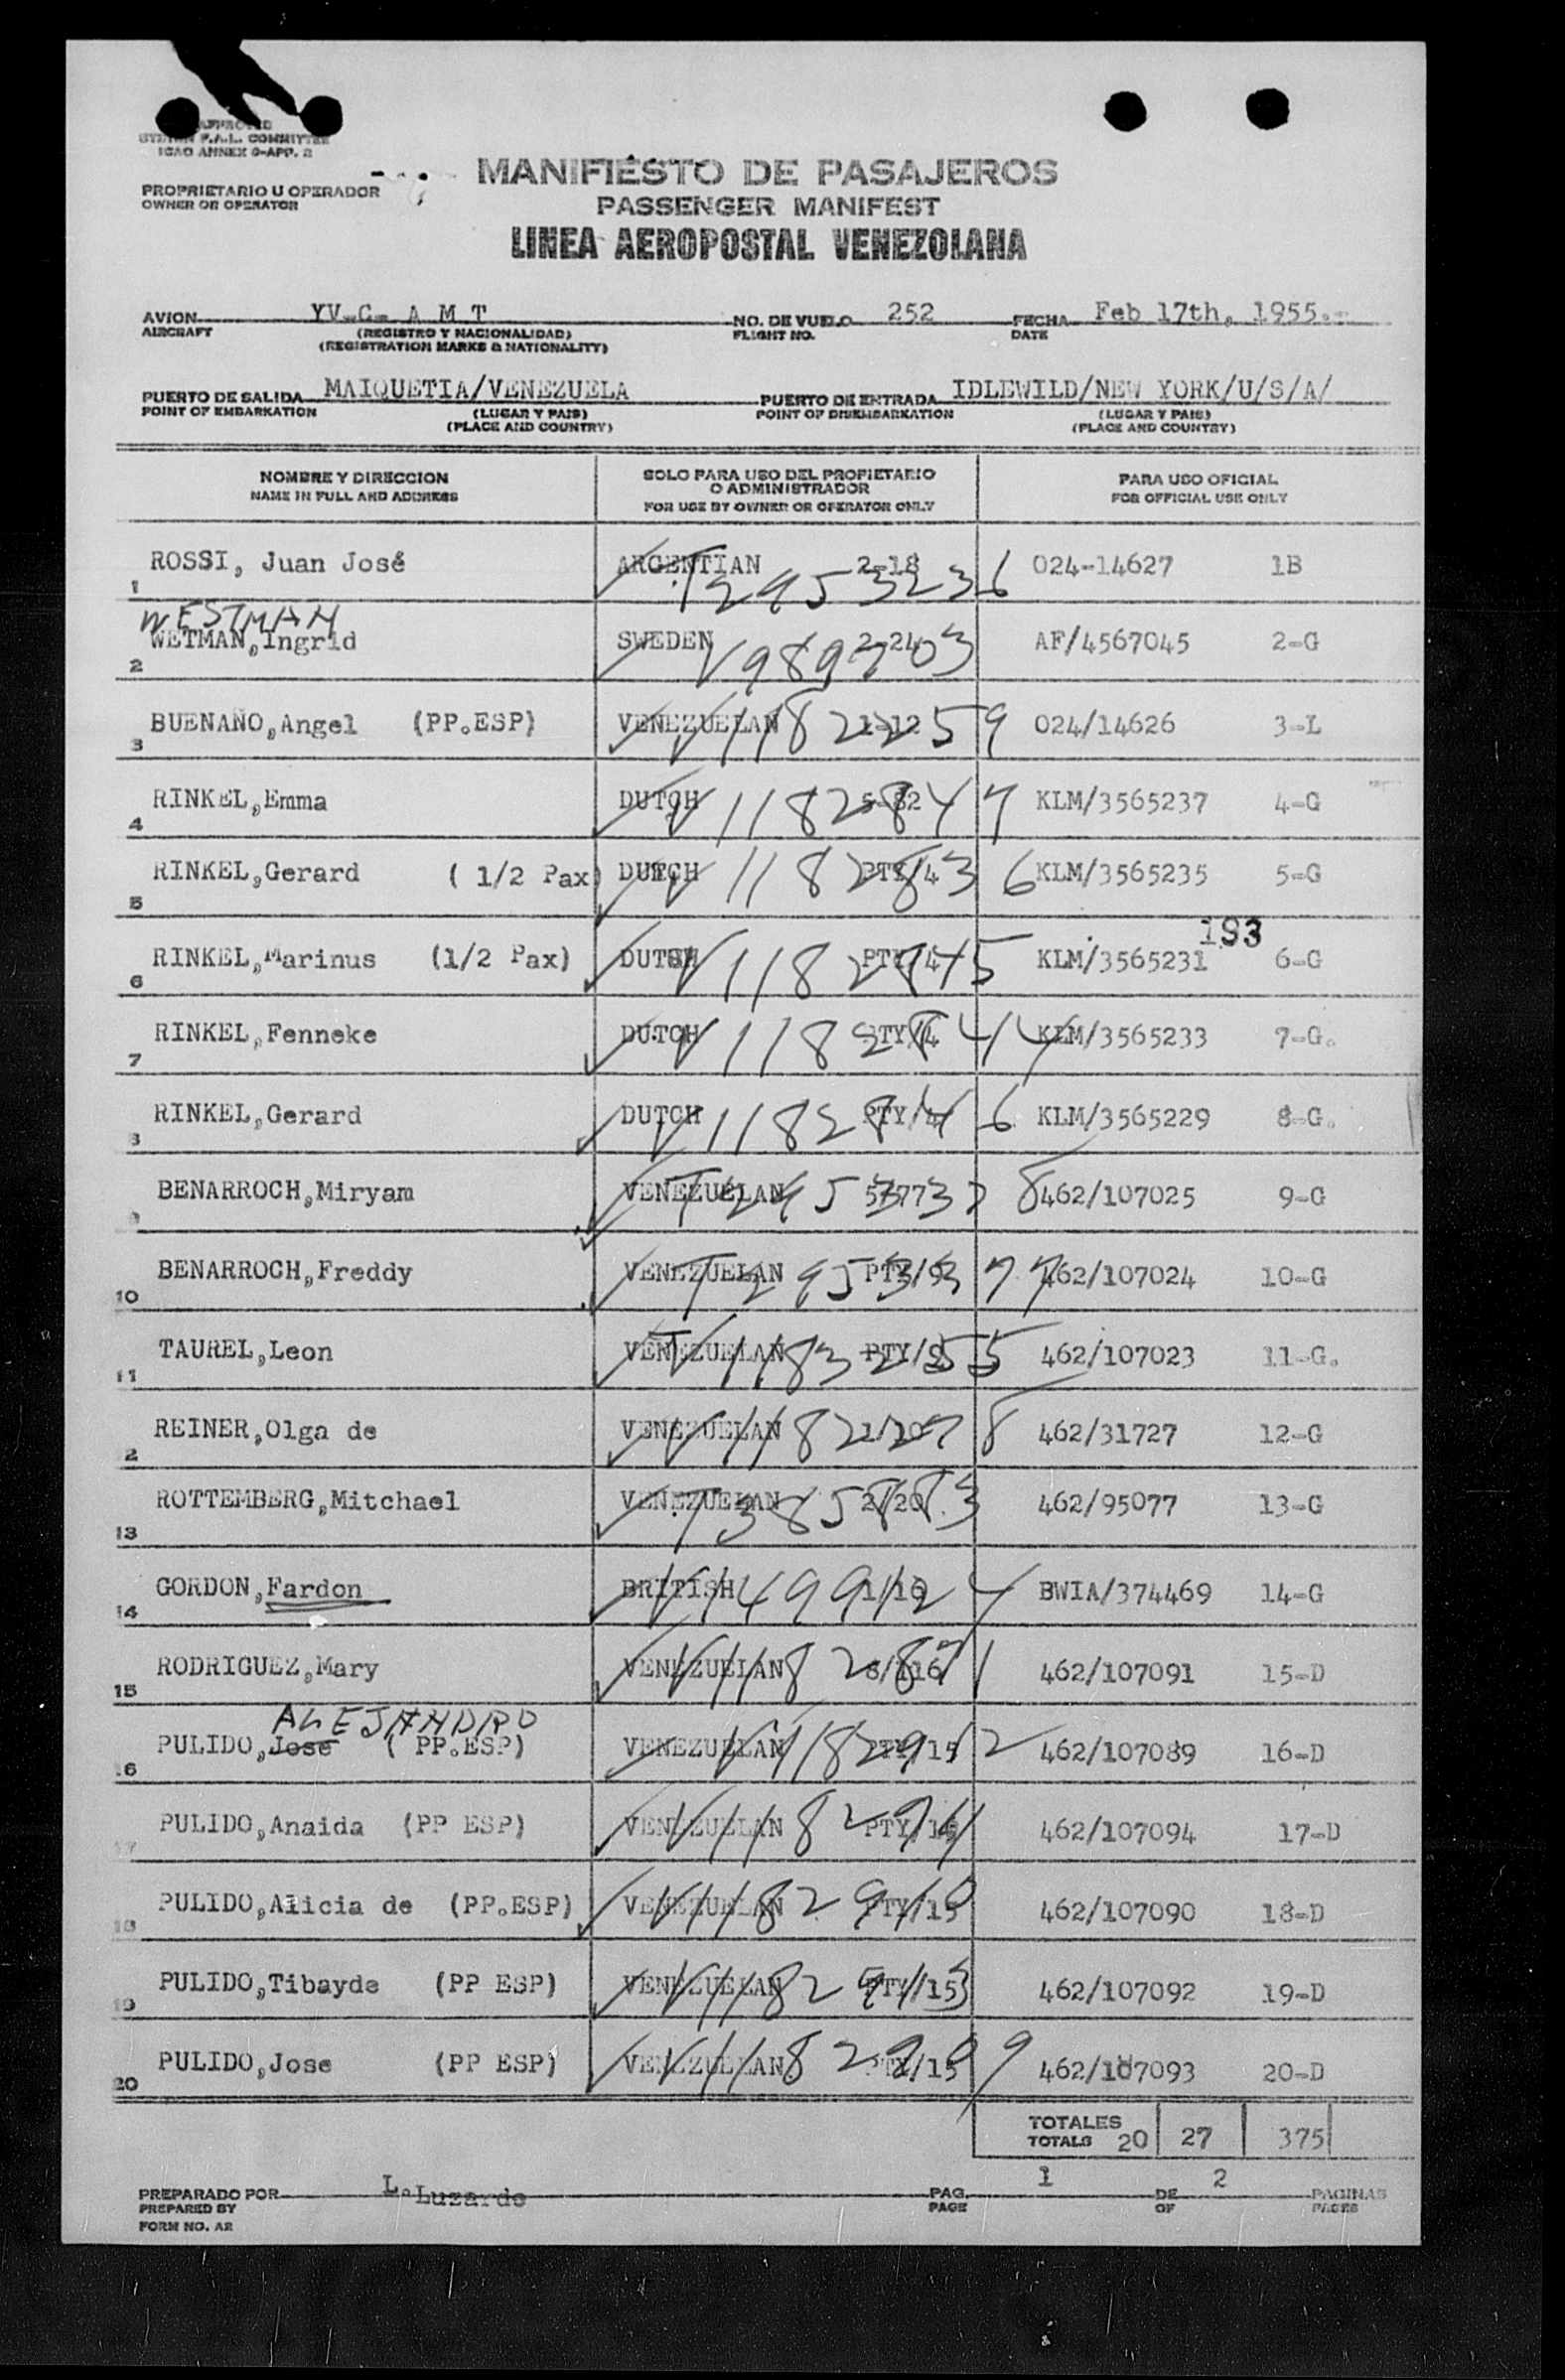 APPROVED
SYSTEM F.A.L. COMMITTEE
ICAO ANNEX 9-APP. 2
PROPRIETARIO U OPERADOR
OWNER OR OPERATOR
MANIFIESTO DE PASAJEROS
PASSENGER MANIFEST
LINEA AEROPOSTAL VENEZOLANA
AVION YV-C- A M T NO. DE VUELO 252 FECHA Feb 17th, 1955.-
AIRCRAFT (REGISTRO Y NACIONALIDAD) FLIGHT NO. DATE
(REGISTRATION MARKS & NATIONALITY)
PUERTO DE SALIDA MAIQUETIA/VENEZUELA PUERTO DE ENTRADA IDLEWILD/NEW YORK/U/S/A/
POINT OF EMBARKATION (LUGAR Y PAIS) POINT OF DISEMBARKATION (LUGAR Y PAIS)
(PLACE AND COUNTRY) (PLACE AND COUNTRY)
NOMBRE Y DIRECCION SOLO PARA USO DEL PROPIETARIO PARA USO OFICIAL
O ADMINISTRADOR
NAME IN FULL AND ADDRESS FOR USE BY OWNER OR OPERATOR ONLY FOR OFFICIAL USE ONLY
1 ROSSI, Juan José ARGENTIAN 2-18 T2953236 024-14627 1B
WESTMAN
2 WETMAN,Ingrid SWEDEN 2-24 024 AF/4567045 2-G
3 BUENAÑO,Angel (PP.ESP) VENEZUELAN 1-12 V11822259 024/14626 3-L
4 RINKEL,Emma DUTCH V1182847 KLM/3565237 4-G
5 RINKEL,Gerard ( 1/2 Pax) DUTCH PTY/4 V1182836 KLM/3565235 5-G
193
6 RINKEL,Marinus (1/2 Pax) DUTCH PTY/4 KLM/3565231 6-G
7 RINKEL,Fenneke DUTCH PTY/4 KLM/3565233 7-G.
8 RINKEL,Gerard DUTCH PTY/4 KLM/3565229 8-G.
9 BENARROCH,Miryam VENEZUELAN 462/107025 9-G
10 BENARROCH,Freddy VENEZUELAN 462/107024 10-G
11 TAUREL,Leon VENEZUELAN 462/107023 11-G.
12 REINER,Olga de VENEZUELAN 462/31727 12-G
13 ROTTEMBERG,Mitchael VENEZUELAN 462/95077 13-G
14 GORDON,Fardon BRITISH BWIA/374469 14-G
15 RODRIGUEZ,Mary VENEZUELAN 462/107091 15-D
ALEJANDRO
16 PULIDO,Jose ( PP.ESP) VENEZUELAN PTY/15 462/107089 16-D
17 PULIDO,Anaida (PP ESP) VENEZUELAN PTY/15 462/107094 17-D
18 PULIDO,Alicia de (PP.ESP) VENEZUELAN PTY/15 V1182910 462/107090 18-D
19 PULIDO,Tibayde (PP ESP) VENEZUELAN PTY/15 V1182913 462/107092 19-D
20 PULIDO,Jose (PP ESP) VENEZUELAN PTY/15 V1182909 462/107093 20-D
TOTALES
TOTALS 20 27 375
PREPARADO POR L.Luzardo PAG. 1 DE 2 PAGINAS
PREPARED BY PAGE OF PAGES
FORM NO. AR